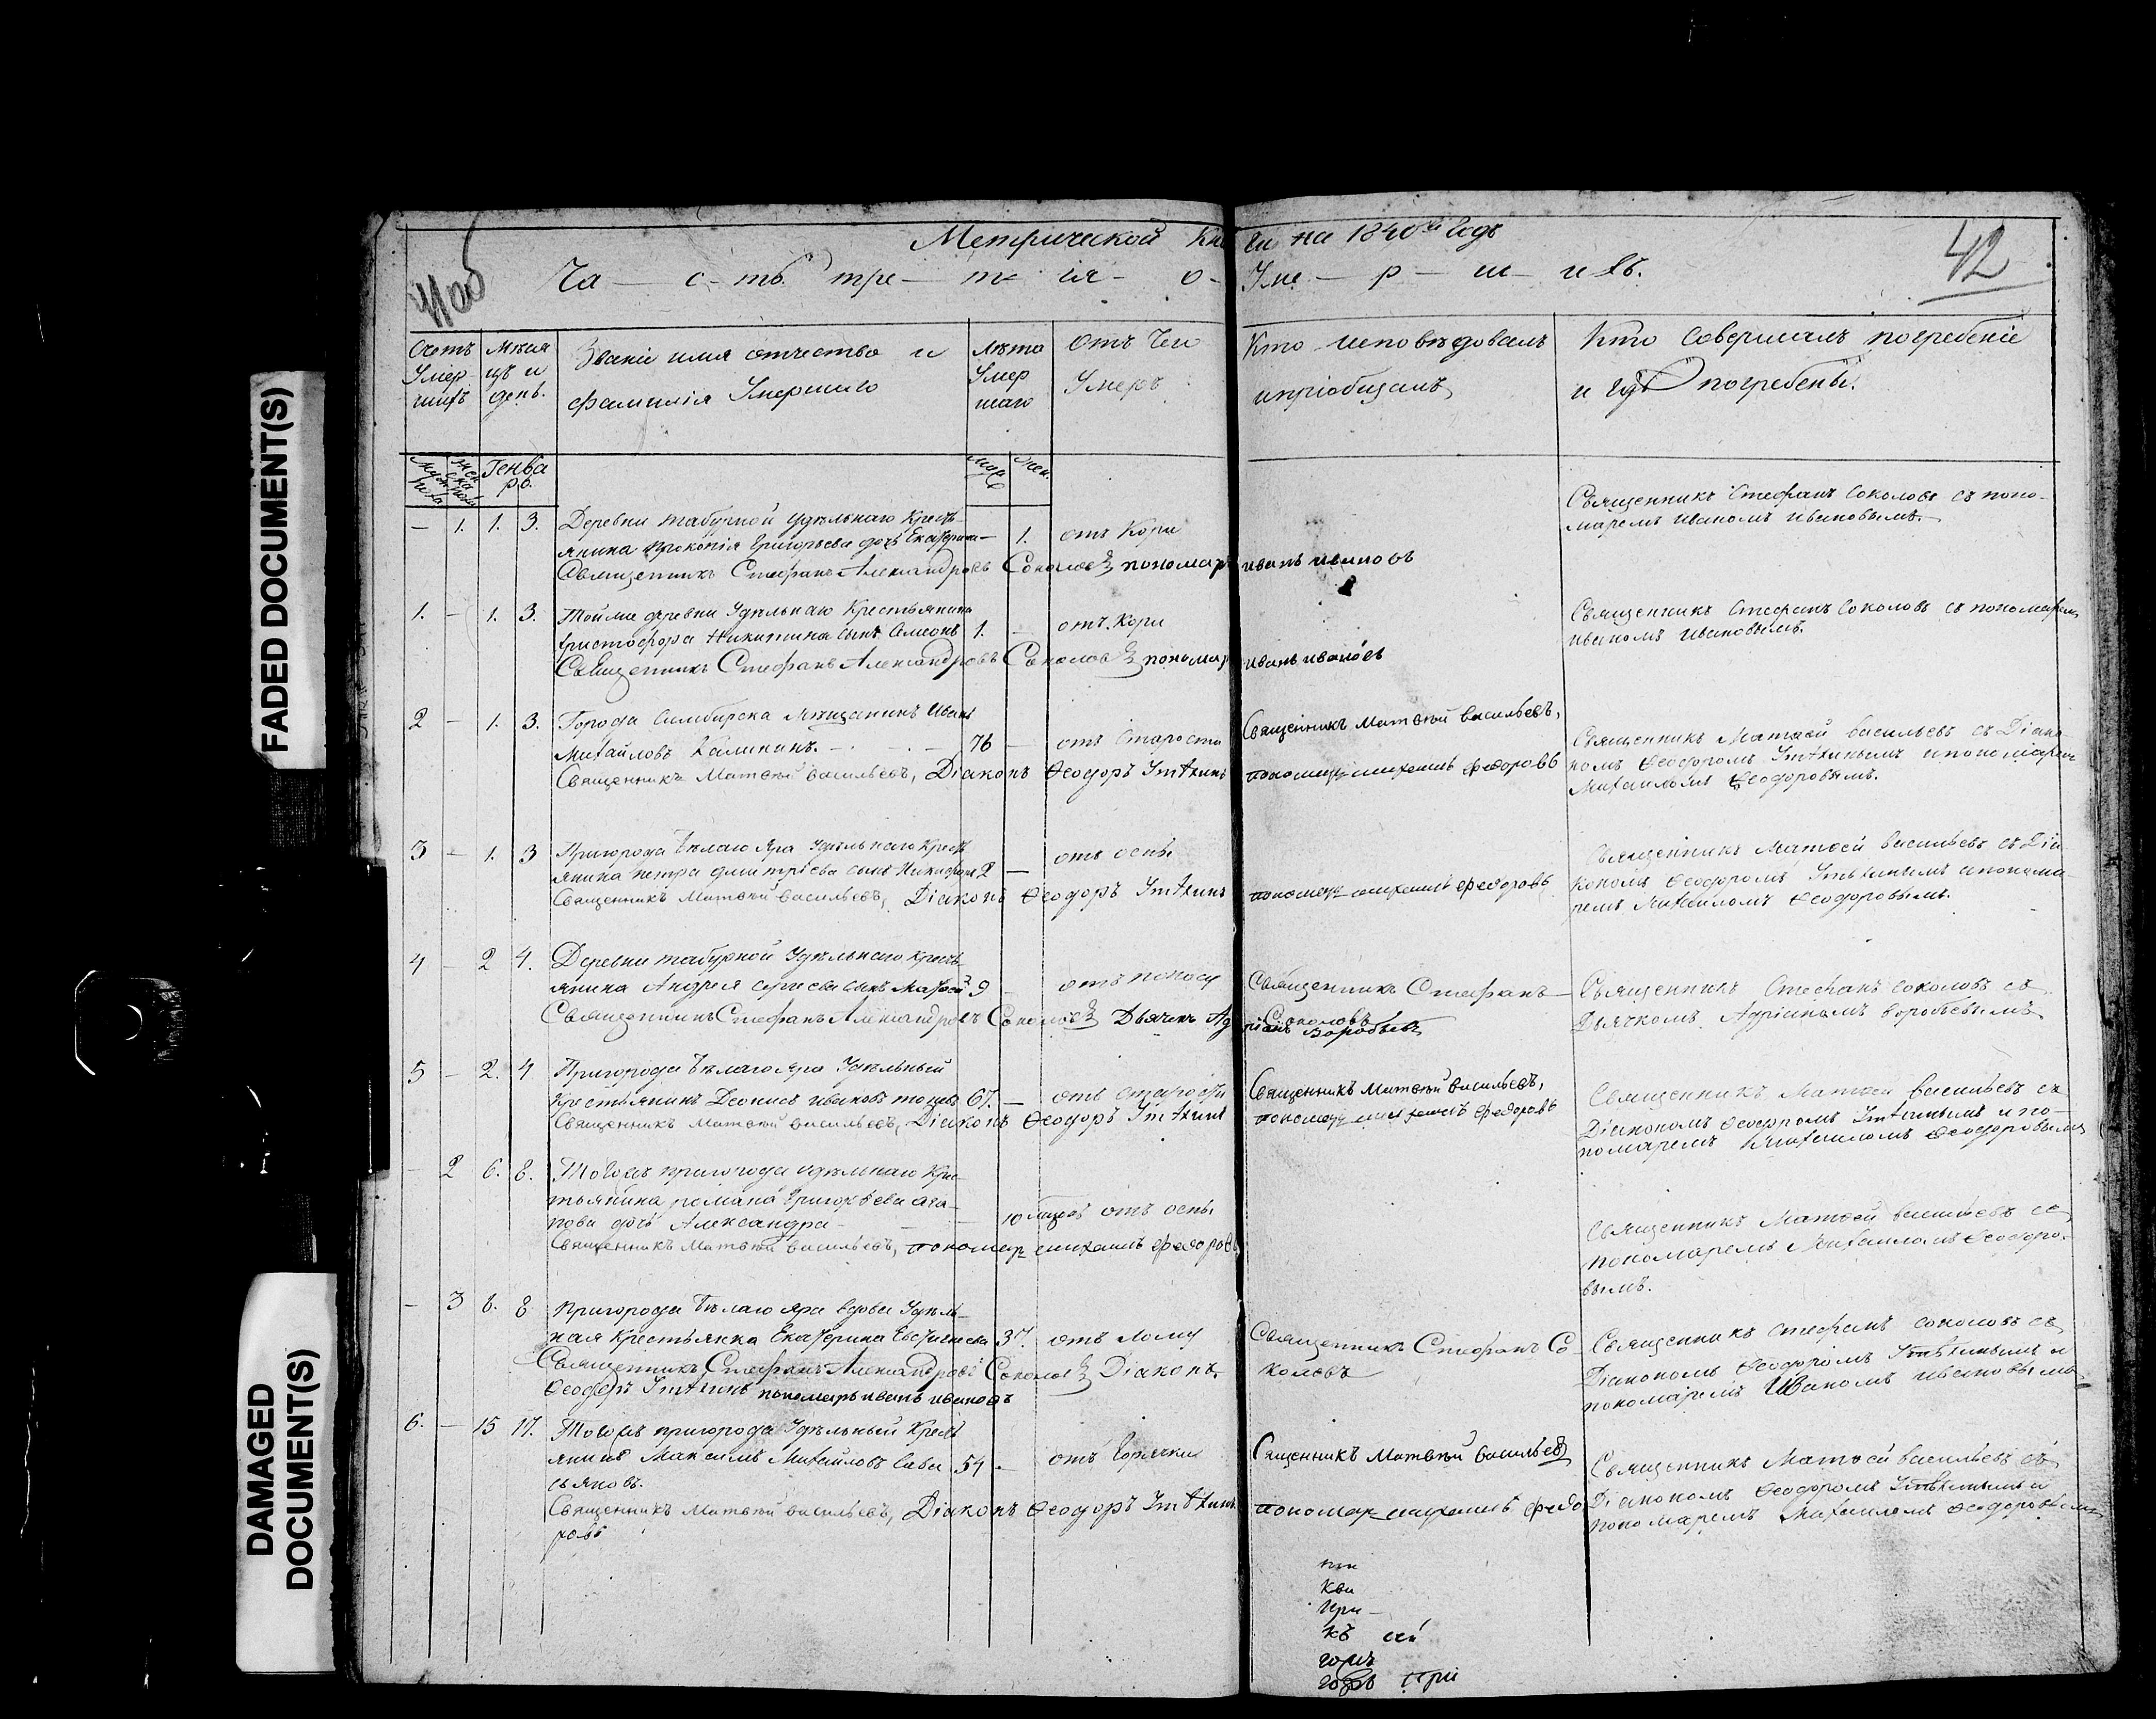 FADED DOCUMENT(S)
DAMAGED
DOCUMENT(S)
41об
42
Метрической Книги на 1840й Годъ
Ча с ть тре т ия о Уме р ш ихъ.
Счетъ Умершихъ
Мѣсяцъ и день.
Званіе имя отчество и фамилія Умершаго
Лѣта Умершаго
Отъ Чего Умеръ
Кто исповѣдовалъ и пріобщалъ
Кто Совершалъ погребеніе и гдѣ погребены.
Генваръ.
- 1. 1. 3. Деревни табурной Удѣльнаго Кресть-
янина Прокопія Григорьева дочь Екатерина - 1. отъ Кори
Священникъ Стефанъ Александровъ Соколовъ пономарь иванъ ивановъ
Священникъ Стефанъ Соколовъ съ поно-
маремъ Иваномъ Ивановымъ.
1. - 1. 3. Тойже деревни Удѣльнаго Крестьянина
Христофора Никитина сынъ Симеонъ 1. - отъ Кори
Священникъ Стефанъ Александровъ Соколовъ пономарь иванъ ивановъ
Священникъ Стефанъ Соколовъ съ пономаремъ
Иваномъ Ивановымъ.
2 - 1. 3. Города Симбирска Мѣщанинъ Иванъ
Михайловъ Калининъ. - 76 - отъ Старости
Священникъ Матвѣй Васильевъ, Діаконъ Ѳеодоръ пономарь михаилъ федоровъ
Священникъ Матвѣй васильевъ,
Священникъ Матвей Васильевъ съ Діако-
номъ Ѳеодоромъ и пономаремъ
Михаиломъ Ѳеодоровымъ.
3 - 1. 3 Пригорода Бѣлаго Яра Удѣльнаго Кресть-
янина Петра Дмитріева сынъ Никифоръ 2 - отъ оспы
Священникъ Матвѣй Васильевъ, Діаконъ Ѳеодоръ пономарь михаилъ федоровъ
Священникъ Матвей Васильевъ съ Діа-
кономъ Ѳеодоромъ и понома-
ремъ Михаиломъ Ѳеодоровымъ.
4 - 2 4. Деревни табурной Удѣльнаго Кресть-
янина Андрея Сергеева сынъ 9 - отъ поносу
Священникъ Стефанъ Александровъ Соколовъ Дьячекъ Адріанъ Воробьевъ
Священникъ Стефанъ
Соколовъ
Священникъ Стефанъ Соколовъ съ
Дьячкомъ Адріаномъ Воробьевымъ
5 - 2. 4 Пригорода Бѣлаго Яра Удѣльный
Крестьянинъ Деонисъ Ивановъ 67. - отъ старости
Священникъ Матвѣй Васильевъ, Діаконъ Ѳеодоръ
Священникъ Матвѣй Васильевъ,
пономарь михаилъ федоровъ
Священникъ Матвей Васильевъ съ
Діакономъ Ѳеодоромъ и по-
номаремъ Михаиломъ Ѳеодоровымъ
- 2 6. 8. Тогожъ пригорода Удѣльнаго Крес-
тьянина Романа Григорьева Ага-
пова дочь Александра - 10 отъ оспы
Священникъ Матвѣй Васильевъ, пономарь михаилъ федоровъ
Священникъ Матвей Васильевъ съ
пономаремъ Михаиломъ Ѳеодоро-
вымъ.
- 3 8. 8 Пригорода Бѣлаго Яра вдова Удѣль-
ная Крестьянка Екатерина 37. отъ лому
Священникъ Стефанъ Александровъ Соколовъ Діаконъ
Ѳеодоръ пономарь иванъ ивановъ
Священникъ Стефанъ Со-
коловъ
Священникъ Стефанъ Соколовъ съ
Діакономъ Ѳеодоромъ и
пономаремъ Иваномъ Ивановымъ
6. - 15 17. Тогожъ пригорода Удѣльный Кресть-
янинъ Максимъ Михайловъ 54 - отъ Горячки
Священникъ Матвѣй Васильевъ, Діаконъ Ѳеодоръ пономарь михаилъ федо
ровъ
Священникъ Матвѣй Васильевъ
Священникъ Матвей Васильевъ съ
Діакономъ Ѳеодоромъ и
пономаремъ Михаиломъ Ѳеодоровымъ